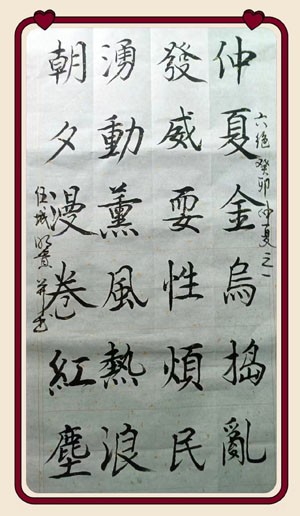 六绝 癸卯仲夏之一
仲夏金烏搗亂
發威耍性煩民
湧動薰風熱浪
朝夕漫卷紅塵
并书